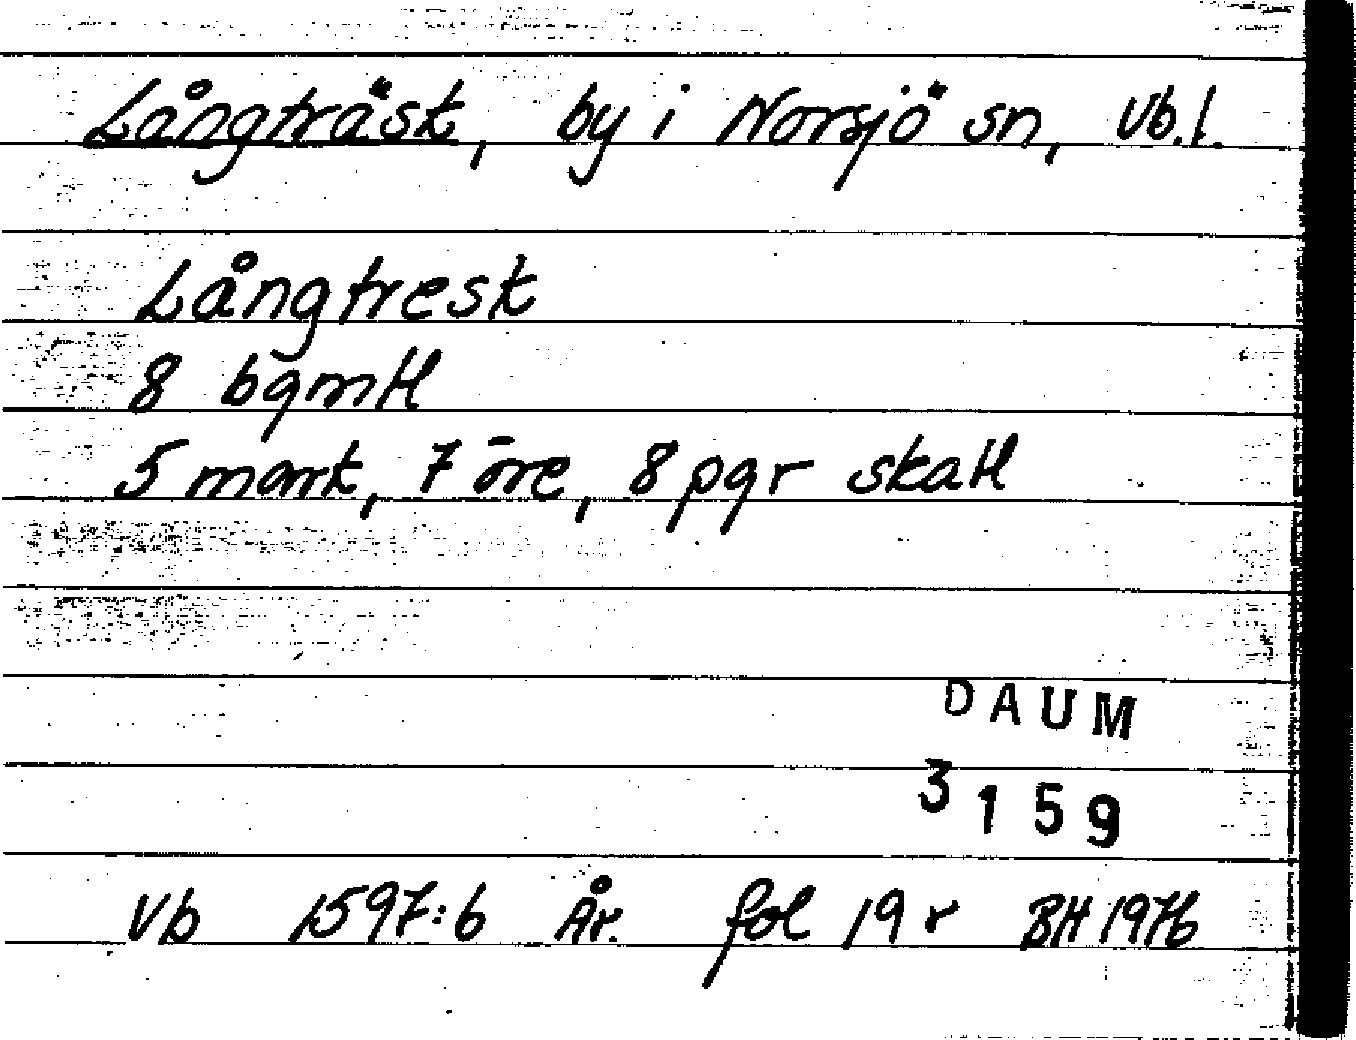 Långträsk, by i Norsjö sn, Vb.l.
Långtresk
8 bgmtl
5 mark, 7 öre, 8 pgr skatt
DAUM
3159
Vb 1597:6 År. fol 19 r BH 1976